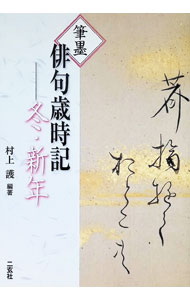 筆墨
俳句歳時記
冬・新年
村上 護 編著
二玄社